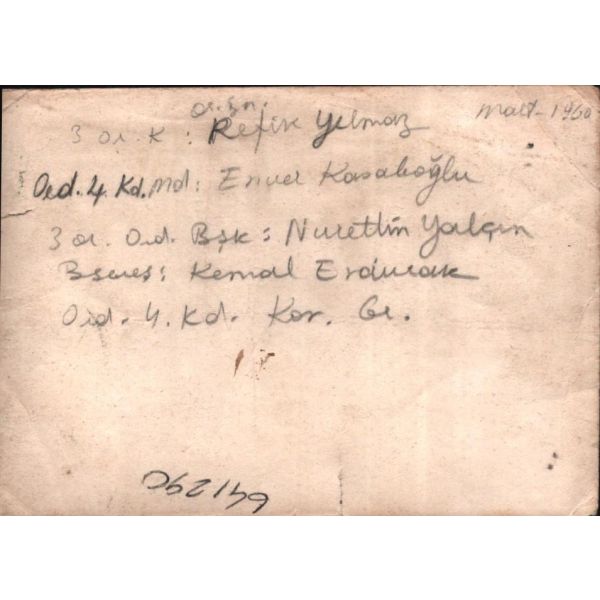 Mart-1960
Or. Gn.
3 Or. K: Refik Yılmaz
Ord. 4. Kd. Md: Enver Kasaboğlu
3 or. Ord. Bşk: Nurettin Yalçın
Kemal
Ord. 4. Kd. Kor. Gr.
641290